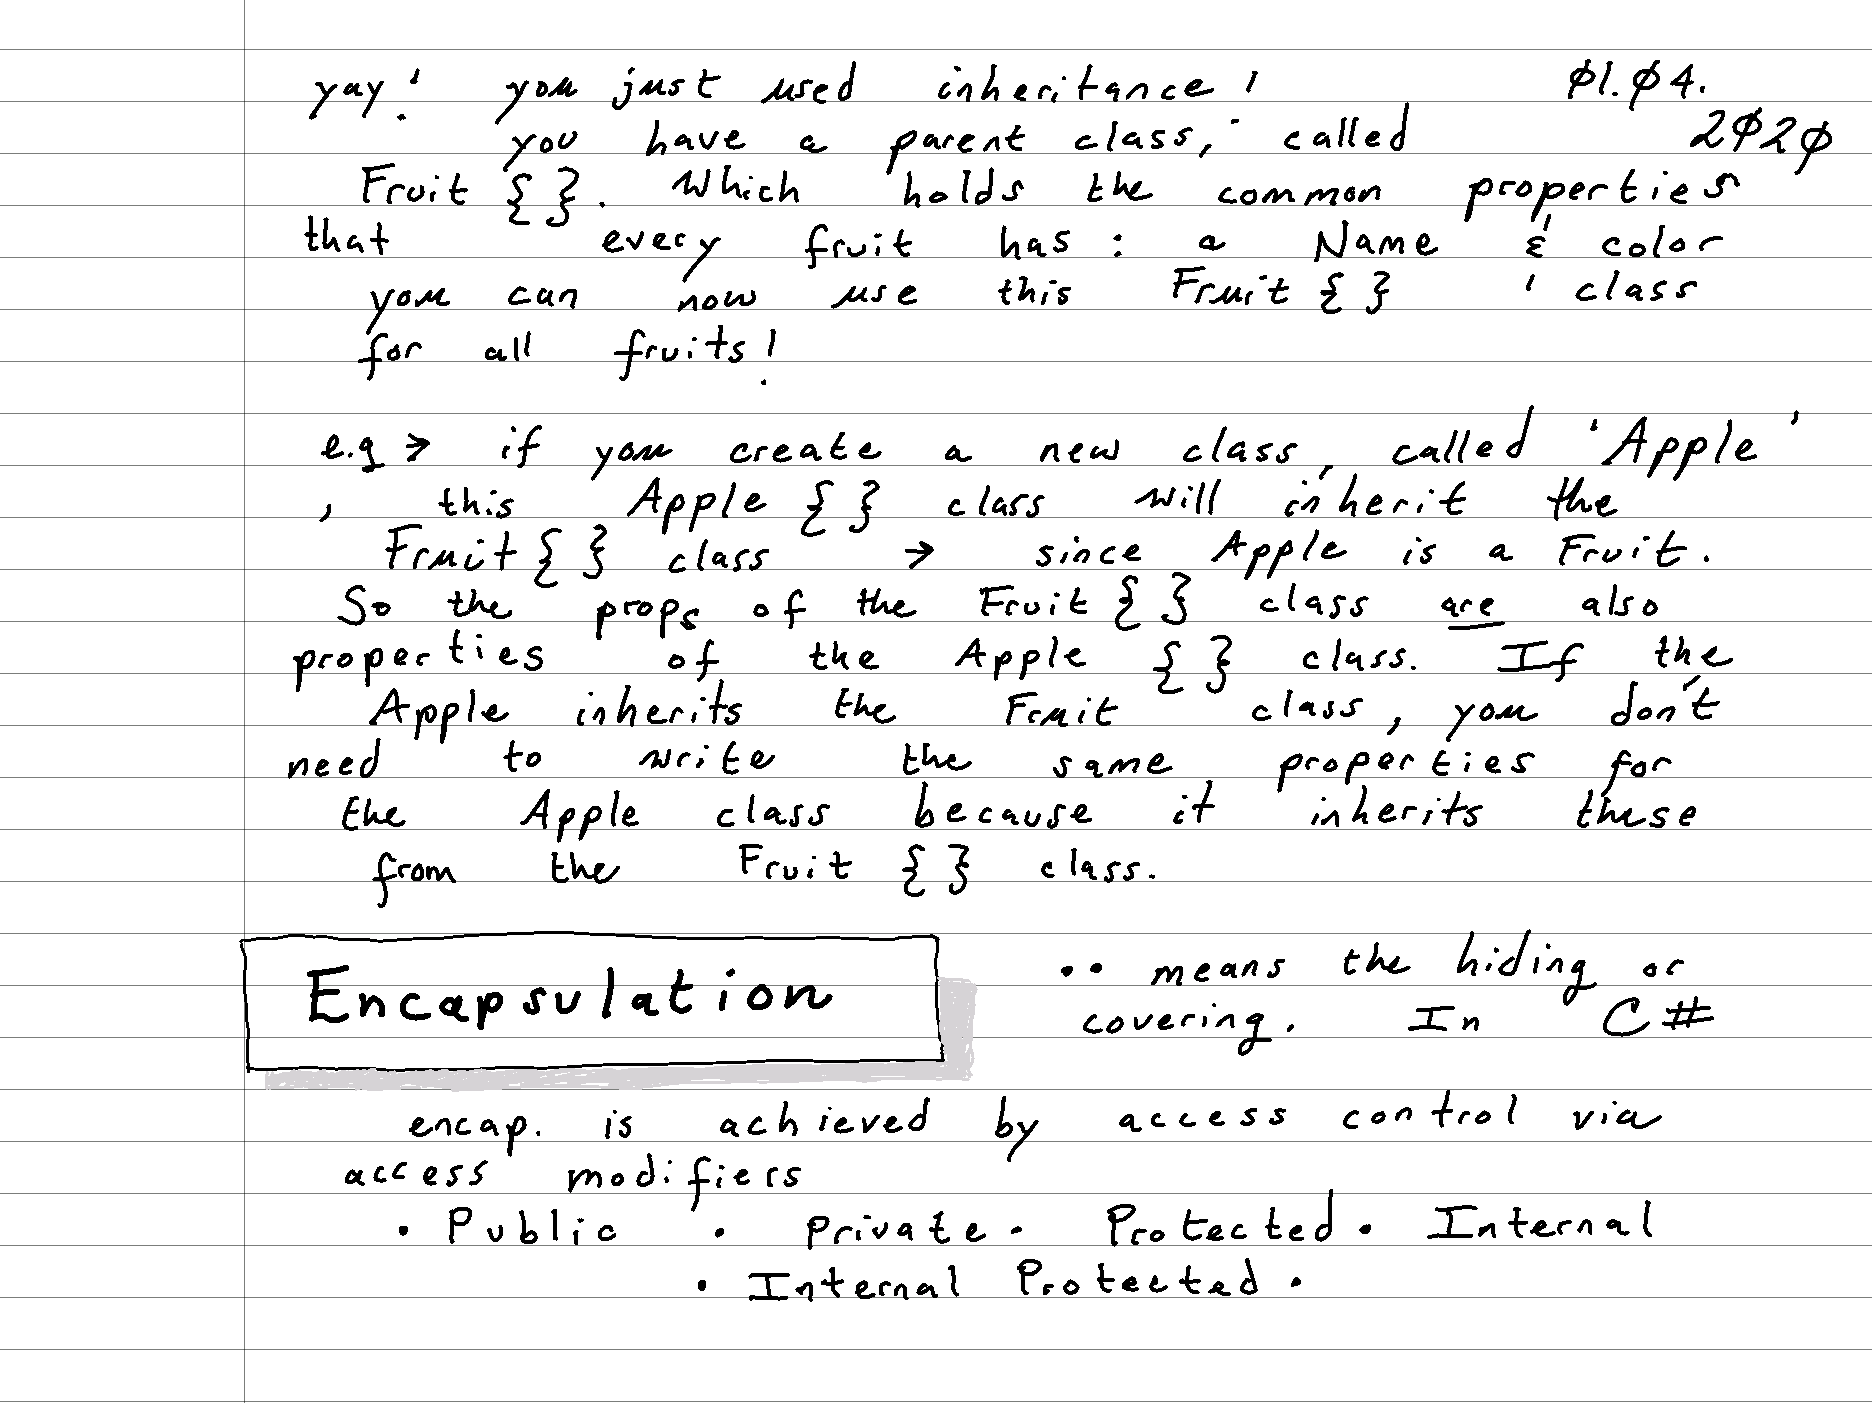 yay! you just used inheritance! Ø1.Ø4.
you have a parent class, called 2Ø2Ø
Fruit {}. Which holds the common properties
that every fruit has: a Name & color
you can now use this Fruit {} ' class
for all fruits!
e.g > if you create a new class, called 'Apple'
, this Apple {} class will inherit the
Fruit {} class → since Apple is a Fruit.
So the props of the Fruit {} class are also
properties of the Apple {} class. If the
Apple inherits the Fruit class, you don't
need to write the same properties for
the Apple class because it inherits these
from the Fruit {} class.
Encapsulation
•• means the hiding or
covering. In C#
encap. is achieved by access control via
access modifiers
• Public • Private • Protected • Internal
• Internal Protected •